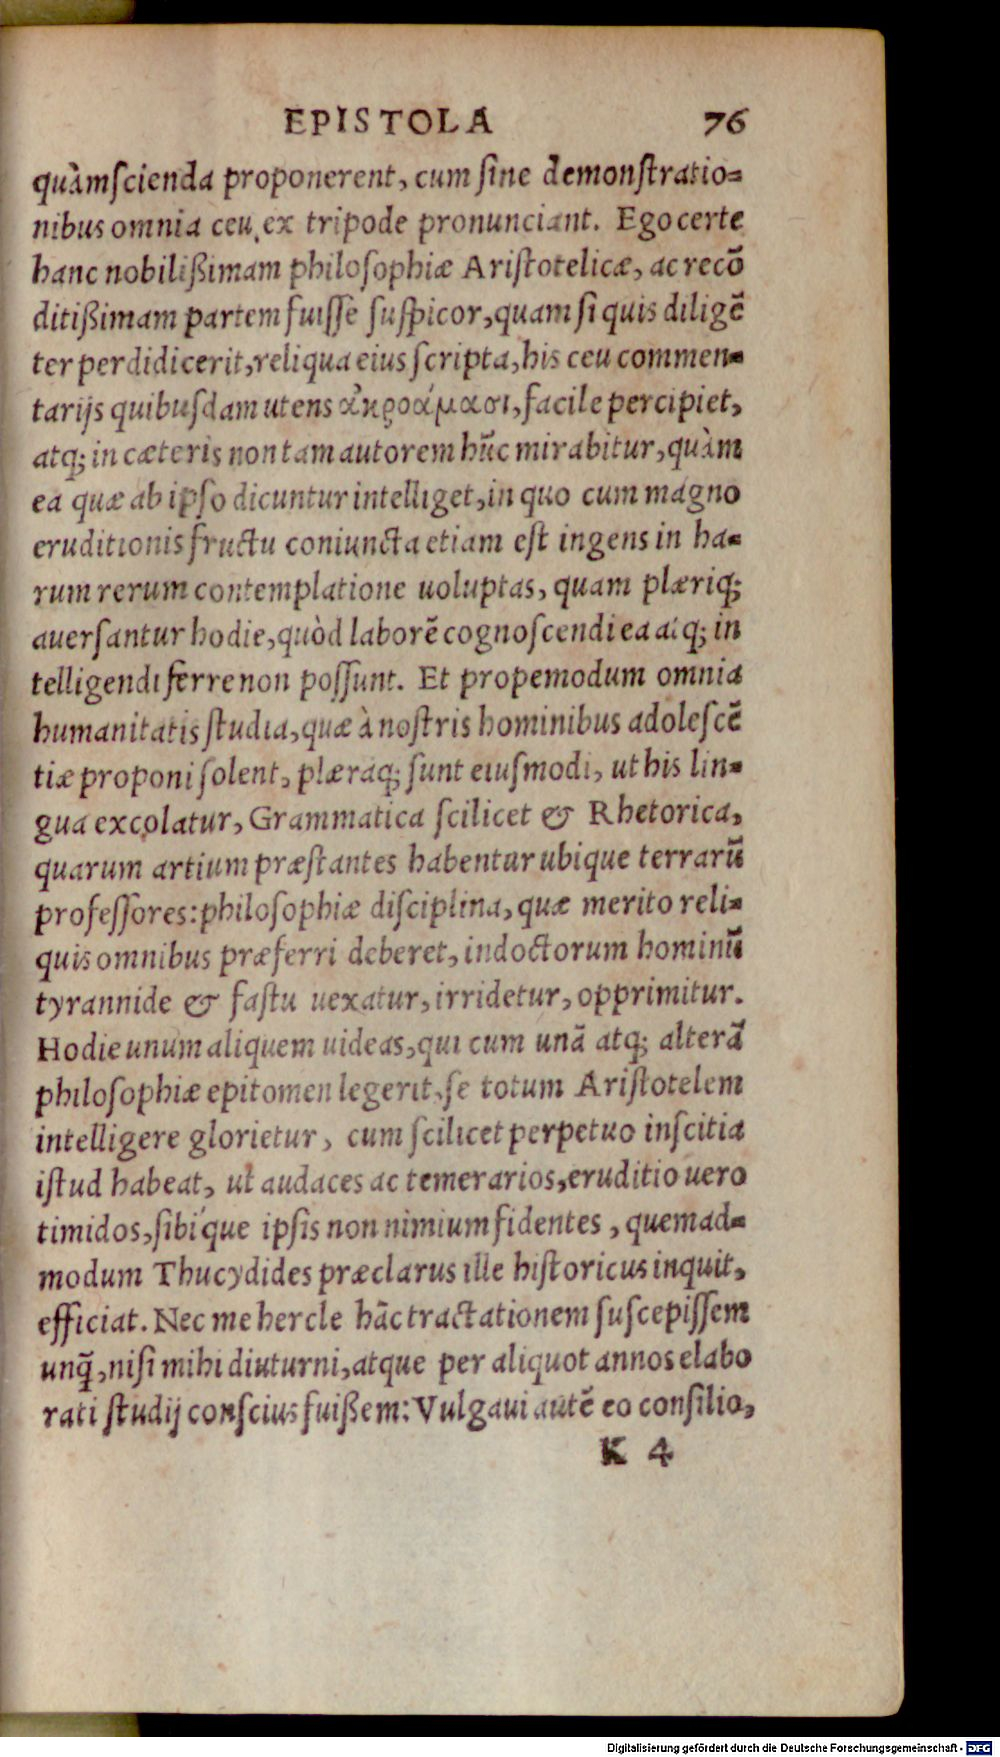 EPISTOLA 76
quàm ſcienda proponerent, cum ſine demonſtratio=
nibus omnia ceu ex tripode pronunciant. Ego certe
hanc nobilißimam philoſophiæ Ariſtotelicæ, ac recō
ditißimam partem fuiſſe ſuſpicor, quam ſi quis diligē
ter perdidicerit, reliqua eius ſcripta, his ceu commen=
tarijs quibuſdam utens ἀκροάμασι, facile percipiet,
atq; in cæteris non tam autorem hūc mirabitur, quàm
ea quæ ab ipſo dicuntur intelliget, in quo cum magno
eruditionis fructu coniuncta etiam eſt ingens in ha=
rum rerum contemplatione uoluptas, quam plæriq;
auerſantur hodie, quòd laborē cognoſcendi ea atq; in
telligendi ferre non poſſunt. Et propemodum omnia
humanitatis ſtudia, quæ à noſtris hominibus adoleſcē
tiæ proponi ſolent, plæraq; ſunt eiuſmodi, ut his lin=
gua excolatur, Grammatica ſcilicet & Rhetorica,
quarum artium præſtantes habentur ubique terrarū
profeſſores: philoſophiæ diſciplina, quæ merito reli=
quis omnibus præferri deberet, indoctorum hominū
tyrannide & faſtu uexatur, irridetur, opprimitur.
Hodie unum aliquem uideas, qui cum unā atq; alterā
philoſophiæ epitomen legerit, ſe totum Ariſtotelem
intelligere glorietur, cum ſcilicet perpetuo inſcitia
iſtud habeat, ut audaces ac temerarios, eruditio uero
timidos, ſibíque ipſis non nimium fidentes, quemad=
modum Thucydides præclarus ille hiſtoricus inquit,
efficiat. Nec me hercle hāc tractationem ſuſcepiſſem
unq̃, niſi mihi diuturni, atque per aliquot annos elabo
rati ſtudij conſcius fuißem: Vulgaui autē eo conſilio,
K 4
Digitalisierung gefördert durch die Deutsche Forschungsgemeinschaft - DFG